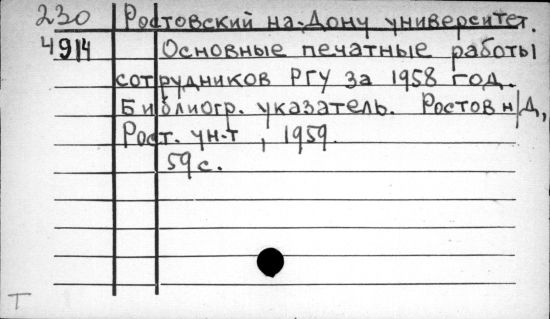 230 Ростовский на-Дону университет.
4914 Основные печатные работы
сотрудников РГУ за 1958 год.
Библиогр. указатель. Ростов н/Д,
Рост. ун-т, 1959.
59 с.
Т